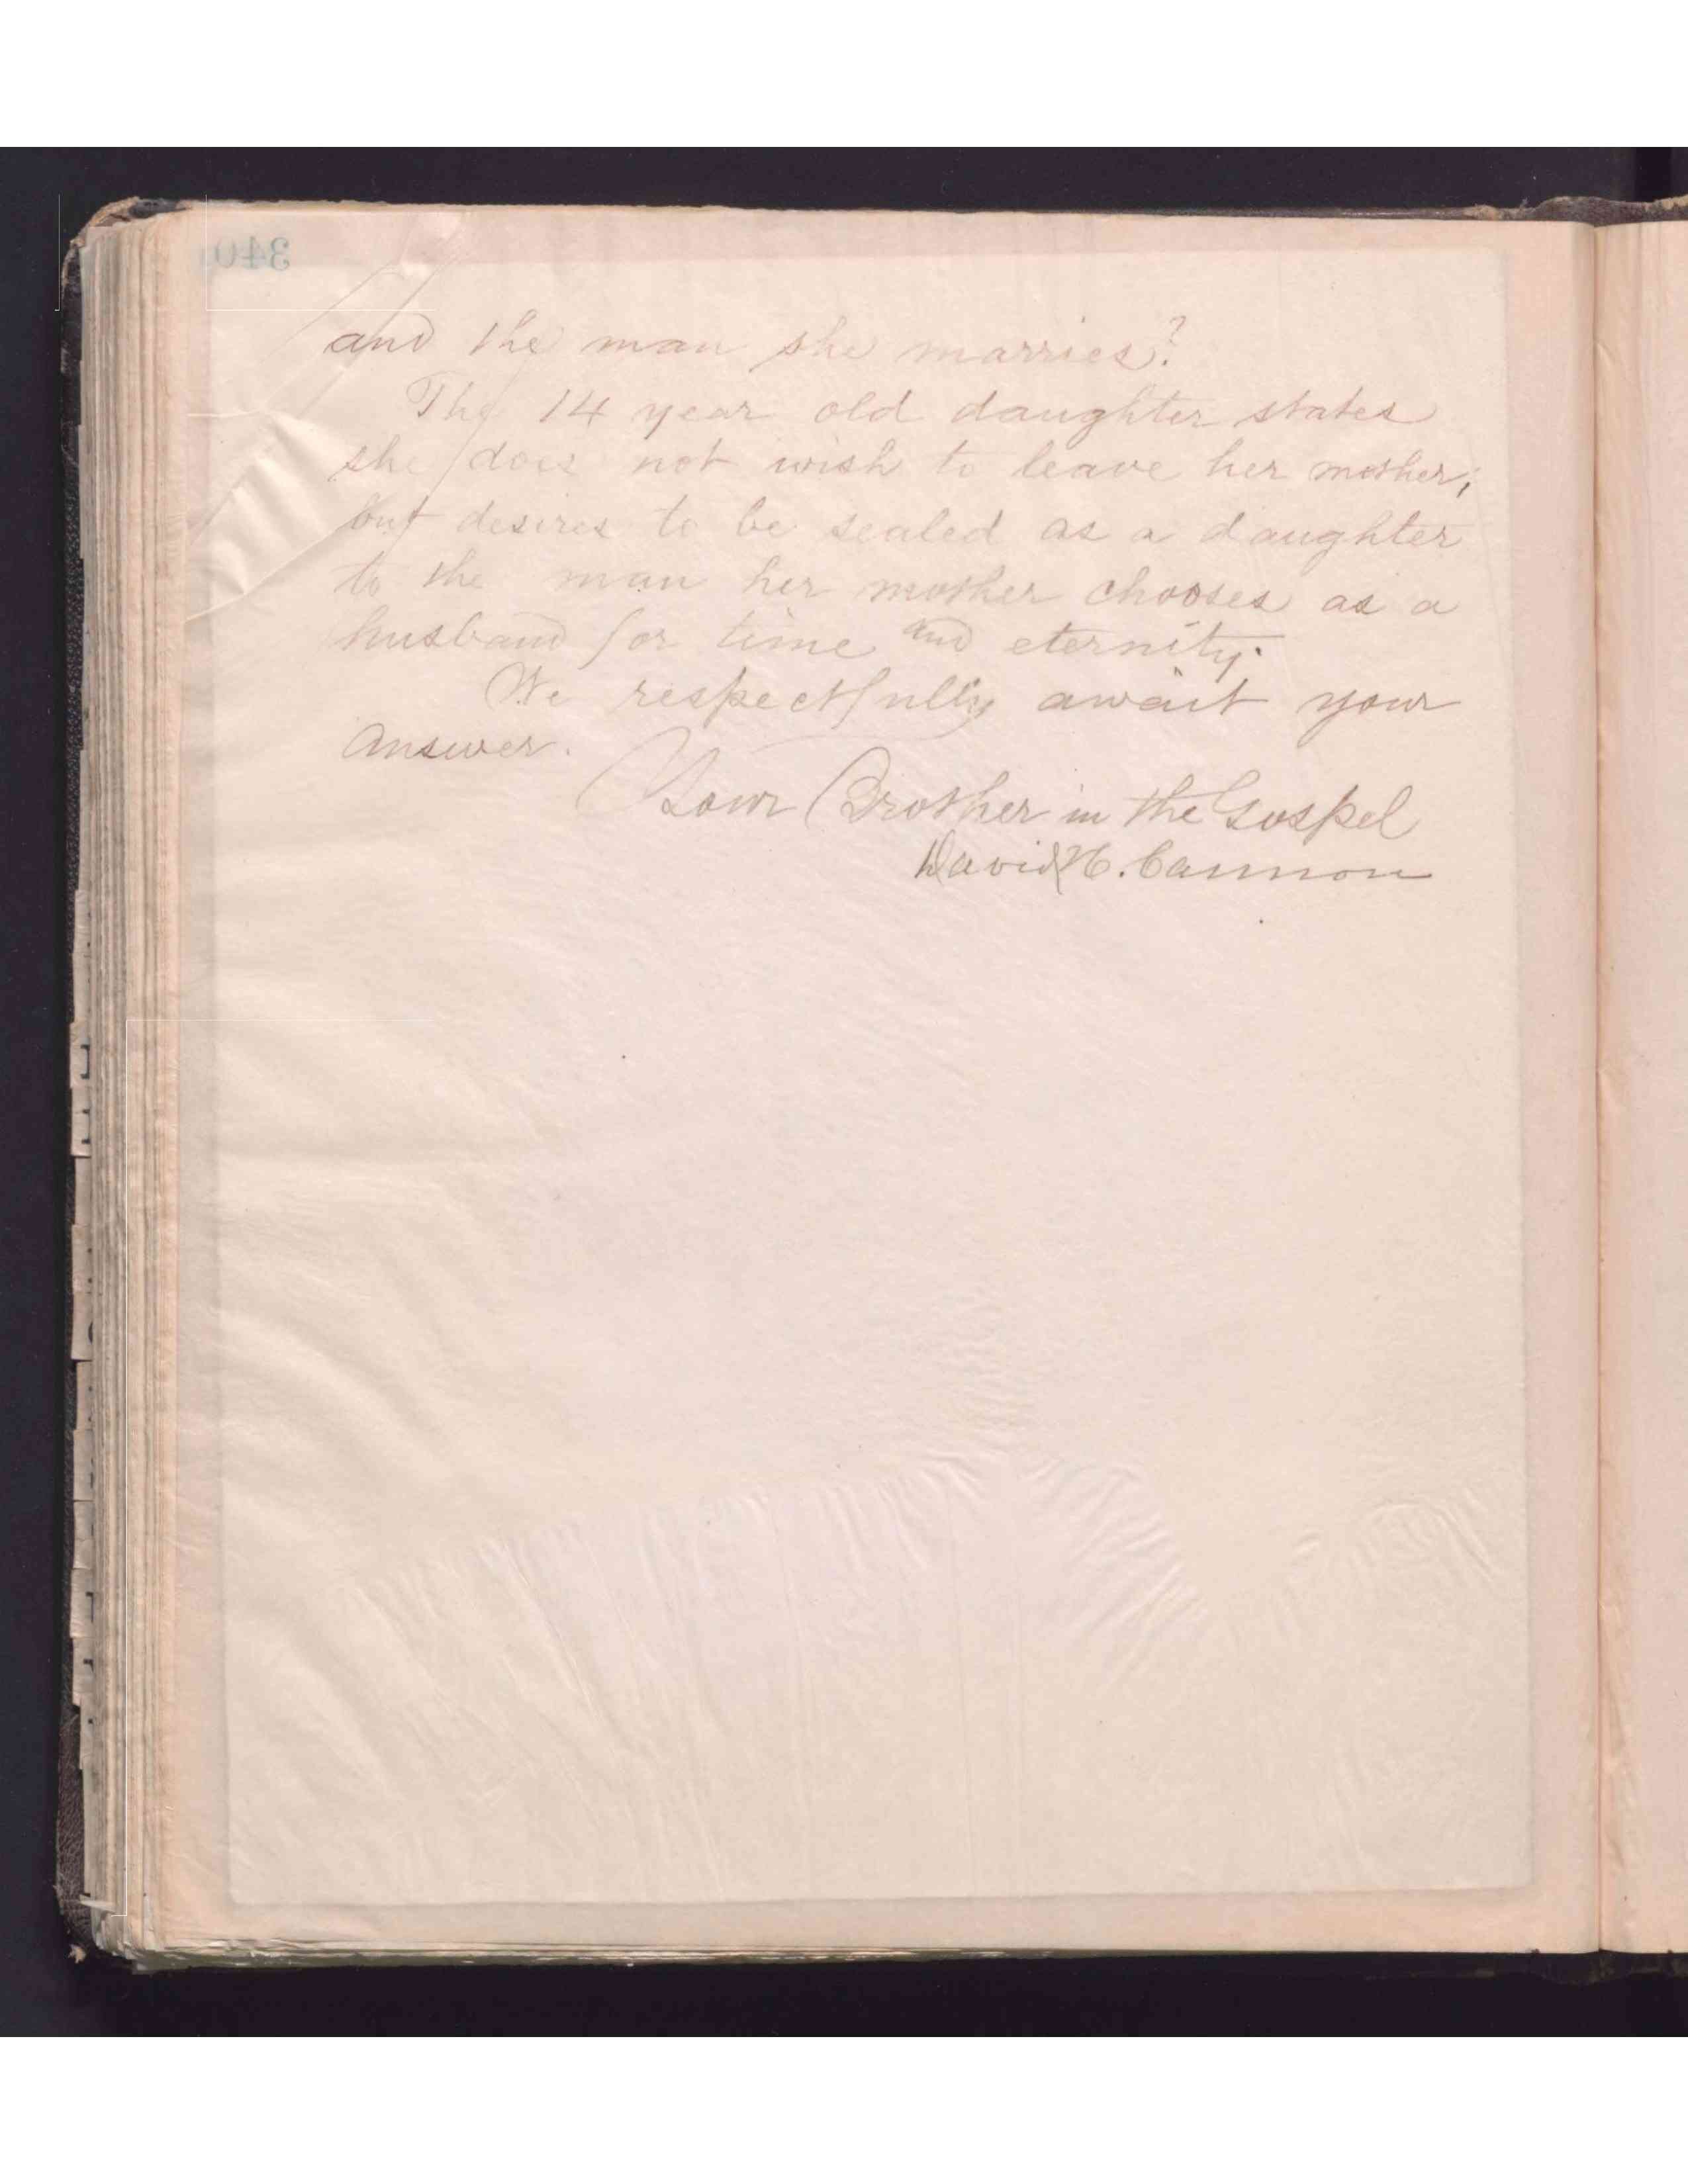 340
and the man she marries?
The 14 year old daughter states
she does not wish to leave her mother;
but desires to be sealed as a daughter
to the man her mother chooses as a
husband for time and eternity.
We respectfully await your
answer.
Your Brother in the Gospel
David H. Cannon